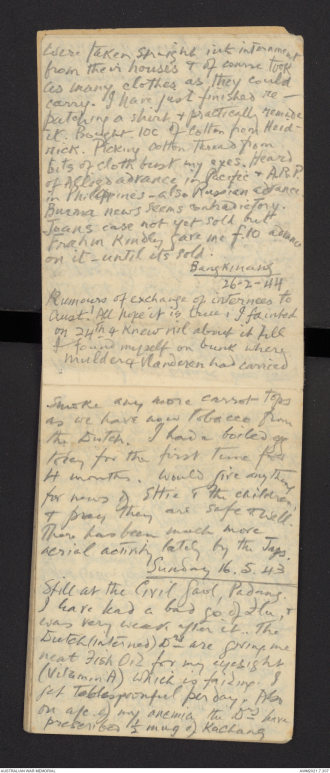 were taken straight into internment
from their houses & of course took
as many clothes as they could
carry. I have just finished re-
patching a shirt & practically remade
it. Bought 10c of cotton from Hend-
rick. Picking cotton thread from
bits of cloth bust my eyes. Heard
of Allies advance in Pacific & A.R.P.
in Philippines - also Russian advance
Burma news seems contradictory.
Jeans case not yet sold but
kindly gave me f.10 advance
on it - until its sold.
Bangkinang
26-2-44
Rumours of exchange of internees to
Aust! All hope it is true. I fainted
on 24th & knew nil about it till
I found myself on bunk where
Mulder & Vlanderen had carried
smoke any more carrot tops
as we have now tobacco from
the Dutch. I had a boiled egg
today for the first time for
4 months. Would give anything
for news of & the children
& pray they are safe & well.
There has been much more
aerial activity lately by the Japs.
Sunday 16.5.43
Still at the Civil Gaol, Padang.
I have had a bad go of Flu, &
was very weak after it. The
Dutch (interned) Drs are giving me
neat Fish Oil for my eyesight
(Vitamin A) which is failing. I
get Tablespoonful per day. Also
on a/c of my anemia the Drs have
prescribed ½ mug of Kachang
AUSTRALIAN WAR MEMORIAL